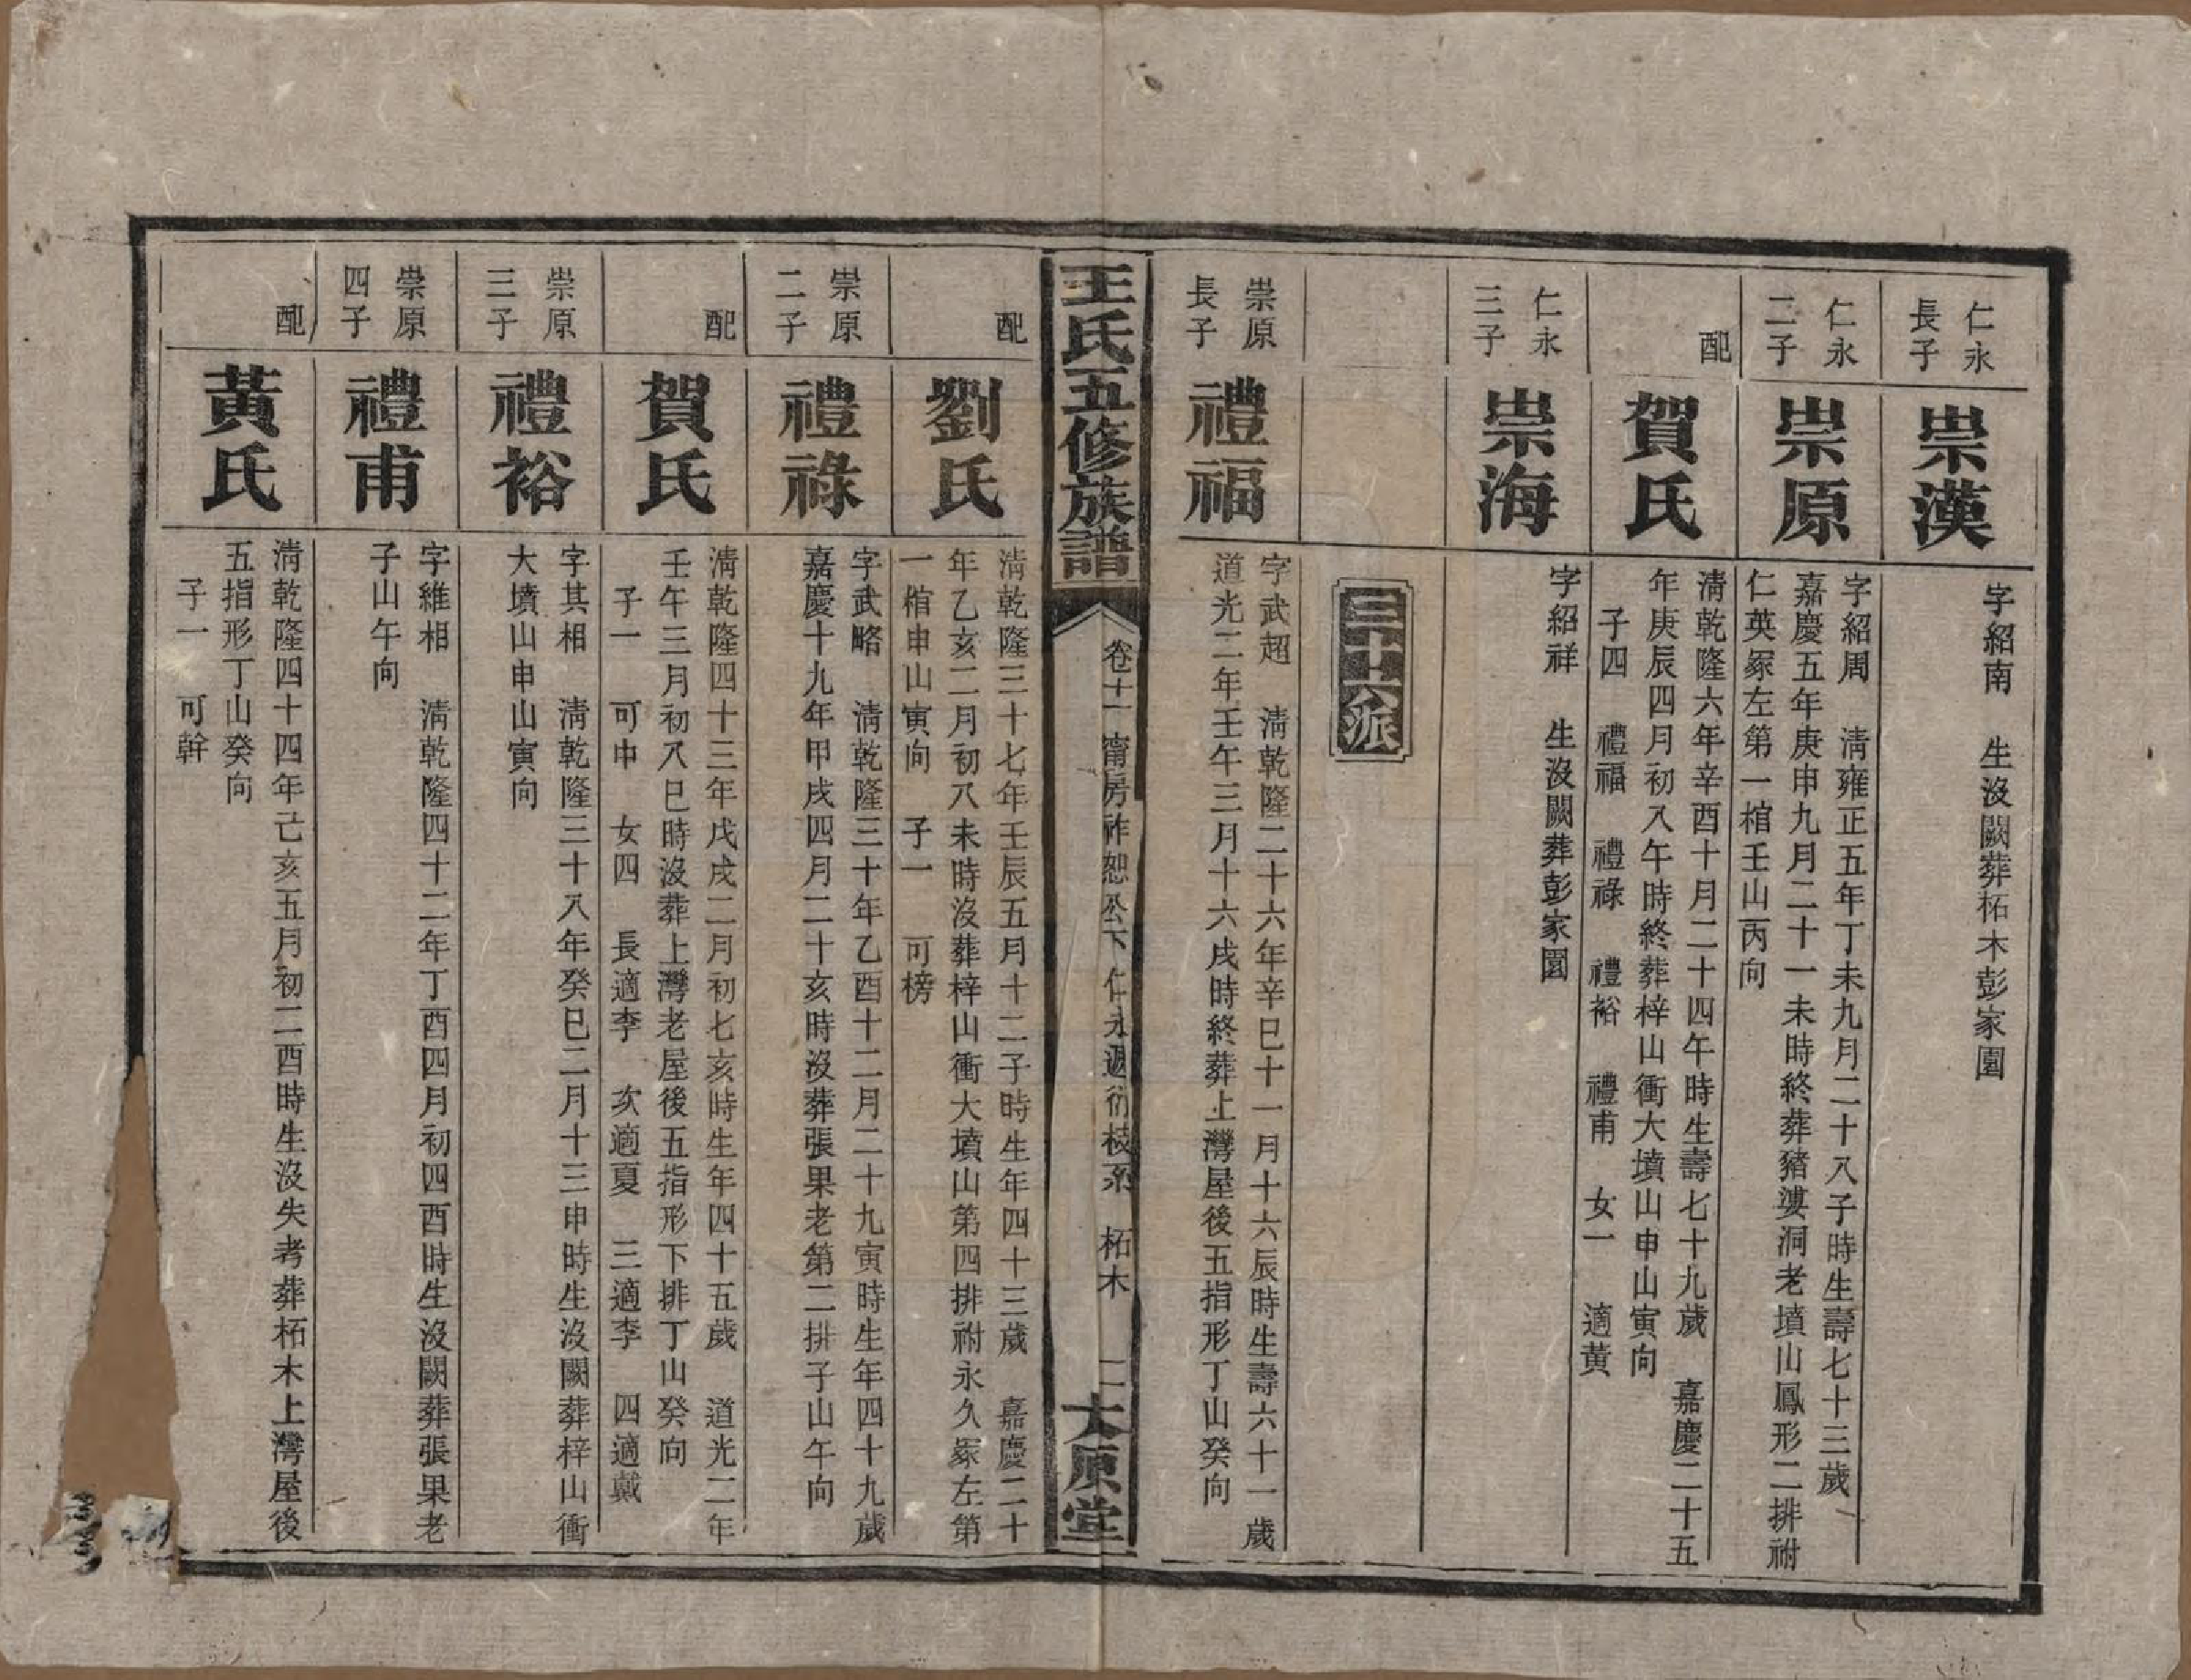 仁永
長子
崇漢
字紹南　生沒闕葬柘木彭家園
仁永
二子
崇原
字紹周　淸雍正五年丁未九月二十八子時生壽七十三歲
嘉慶五年庚申九月二十一未時終葬豬婆洞老墳山鳳形二排祔
仁英冢左第一棺壬山丙向
配
賀氏
淸乾隆六年辛酉十月二十四午時生壽七十九歲　嘉慶二十五
年庚辰四月初八午時終葬梓山衝大墳山申山寅向
子四　禮福　禮祿　禮裕　禮甫　女一　適黃
仁永
三子
崇海
字紹祥　生沒闕葬彭家園
三十六派
崇原
長子
禮福
字武超　淸乾隆二十六年辛巳十一月十六辰時生壽六十一歲
道光二年壬午三月十六戌時終葬上灣屋後五指形丁山癸向
王氏五修族譜
卷十一　甯房祚恕公下仁永週衍枝系　柘木　二
大原堂
配
劉氏
淸乾隆三十七年壬辰五月十二子時生年四十三歲　嘉慶二十
年乙亥二月初八未時沒葬梓山衝大墳山第四排祔永久冢左第
一棺申山寅向　子一　可榜
崇原
二子
禮祿
字武略　淸乾隆三十年乙酉十二月二十九寅時生年四十九歲
嘉慶十九年甲戌四月二十亥時沒葬張果老第二排子山午向
配
賀氏
淸乾隆四十三年戊戌二月初七亥時生年四十五歲　道光二年
壬午三月初八巳時沒葬上灣老屋後五指形下排丁山癸向
子一　可中　女四　長適李　次適夏　三適李　四適戴
崇原
三子
禮裕
字其相　淸乾隆三十八年癸巳二月十三申時生沒闕葬梓山衝
大墳山申山寅向
崇原
四子
禮甫
字維相　淸乾隆四十二年丁酉四月初四酉時生沒闕葬張果老
子山午向
配
黃氏
淸乾隆四十四年己亥五月初二酉時生沒失考葬柘木上灣屋後
五指形丁山癸向
子一　可幹